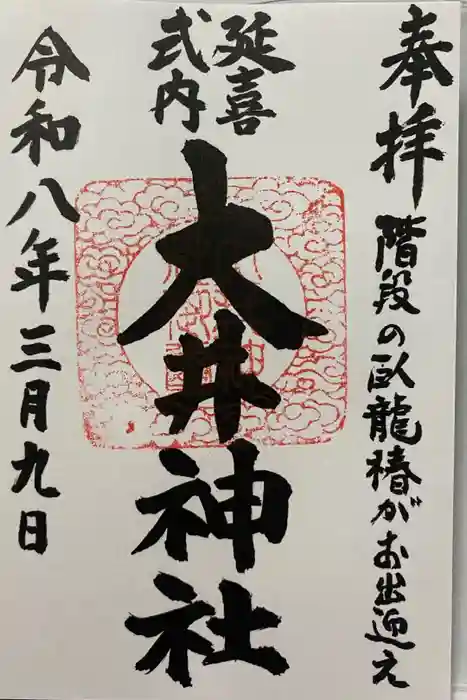 奉拝 階段の臥龍椿がお出迎え
延喜
式内
大井神社
令和八年三月九日